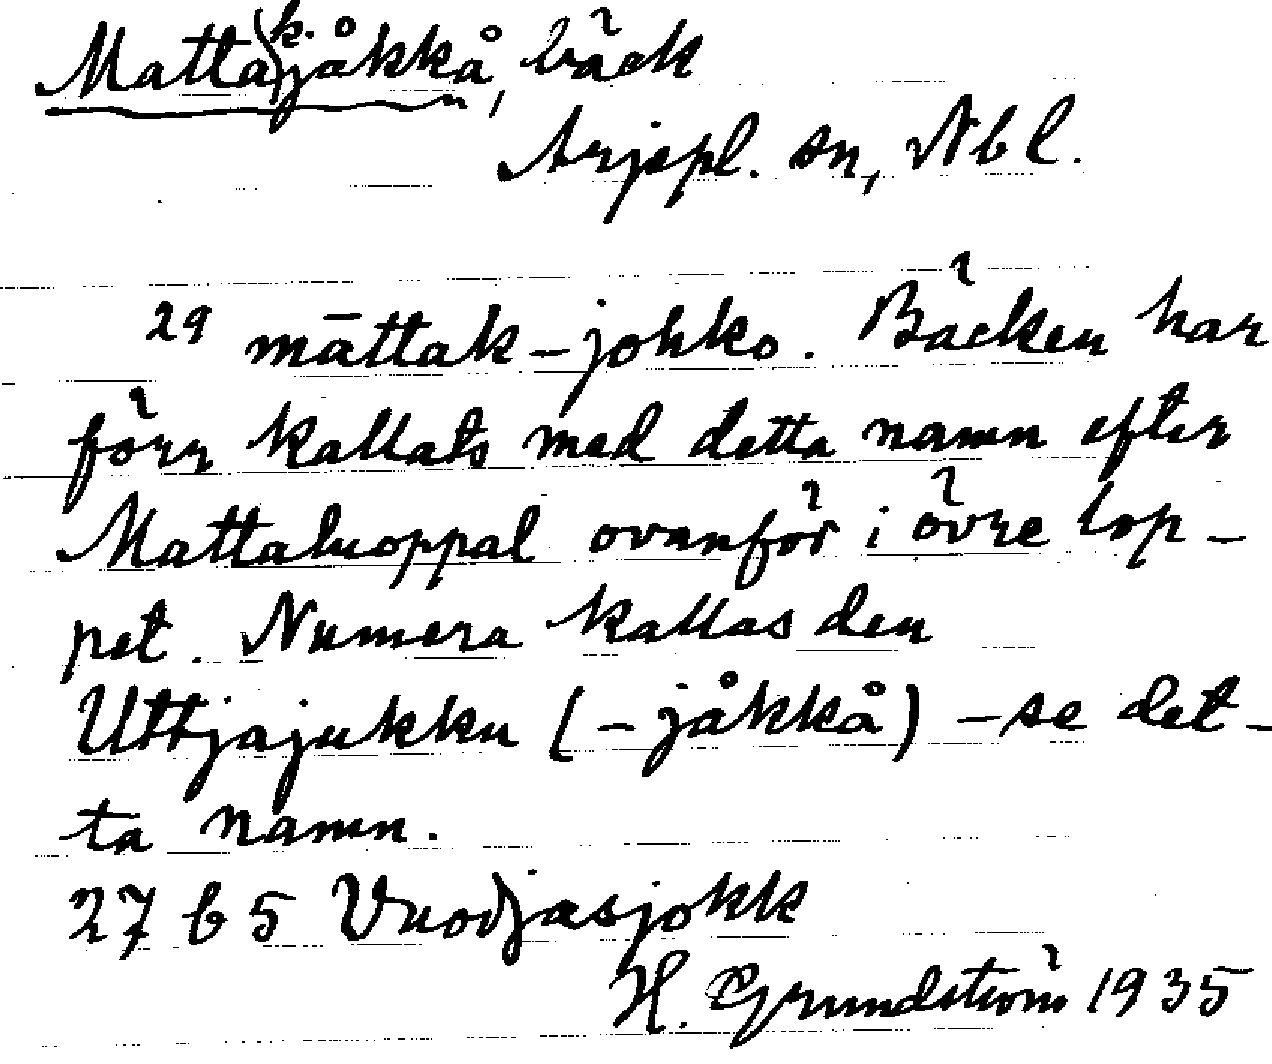 Matta(k.)jåkkå, bäck
Arjepl. sn, Nbl.
29 māttak-johko. Bäcken har
förr kallats med detta namn efter
Mattaluoppal ovanför i övre lop-
pet. Numera kallas den
Uttjajukku (-jåkkå) - se det-
ta namn.
27 b 5 Vuodjasjokk
H. Grundström 1935